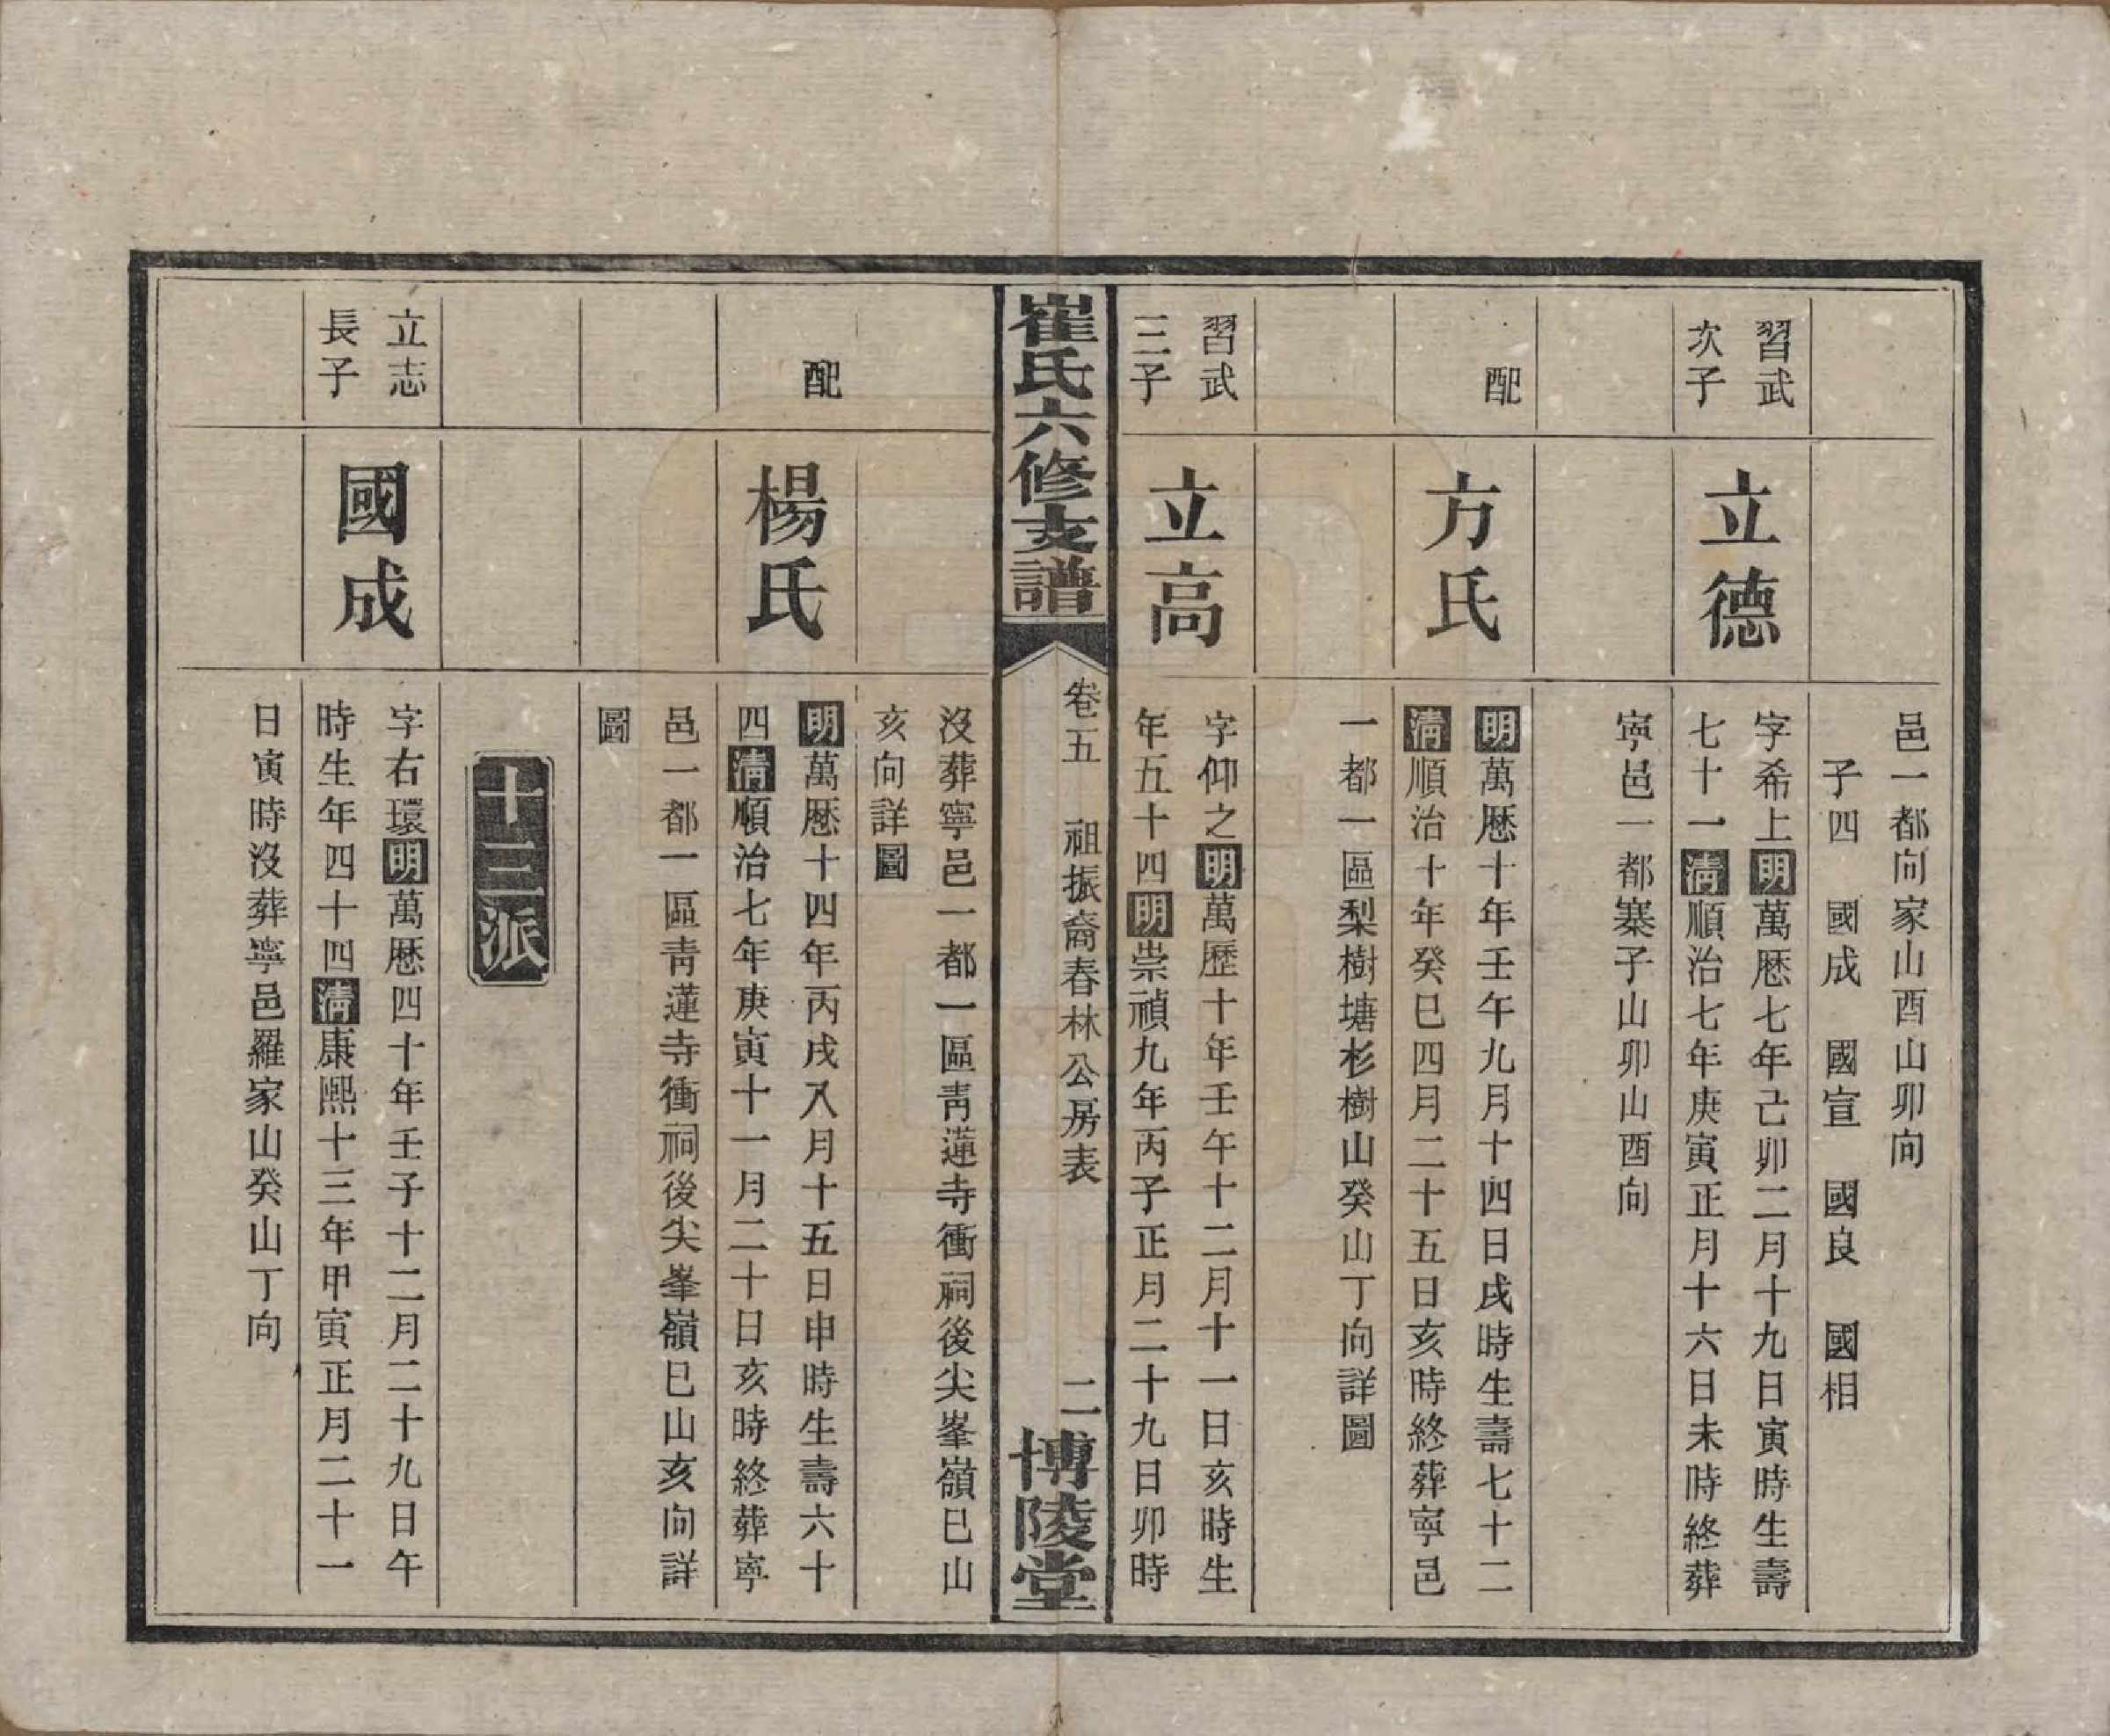 邑一都向家山酉山卯向
子四　國成　國宣　國良　國相
習武
次子
立德
字希上明萬厯七年己卯二月十九日寅時生壽
七十一清順治七年庚寅正月十六日未時終葬
寧邑一都寨子山卯山酉向
配
方氏
明萬厯十年壬午九月十四日戌時生壽七十二
清順治十年癸巳四月二十五日亥時終葬寧邑
一都一區梨樹塘杉樹山癸山丁向詳圖
習武
三子
立高
字仰之明萬歷十年壬午十二月十一日亥時生
年五十四明崇禎九年丙子正月二十九日卯時
崔氏六修支譜
卷五　祖振裔春林公房表
二
博陵堂
沒葬寧邑一都一區靑蓮寺衝祠後尖峯嶺巳山
亥向詳圖
配
楊氏
明萬厯十四年丙戌八月十五日申時生壽六十
四清順治七年庚寅十一月二十日亥時終葬寧
邑一都一區靑蓮寺衝祠後尖峯嶺巳山亥向詳
圖
十三派
立志
長子
國成
字右環明萬厯四十年壬子十二月二十九日午
時生年四十四清康熙十三年甲寅正月二十一
日寅時沒葬寧邑羅家山癸山丁向